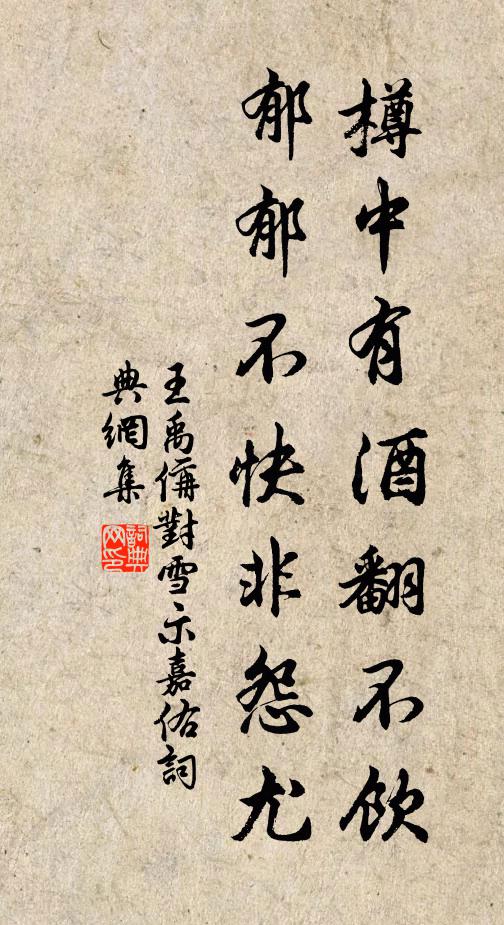 樽中有酒翻不飲
郁郁不快非怨尤
王禹偁對雪示嘉佑詞
典網集
詞典
网印